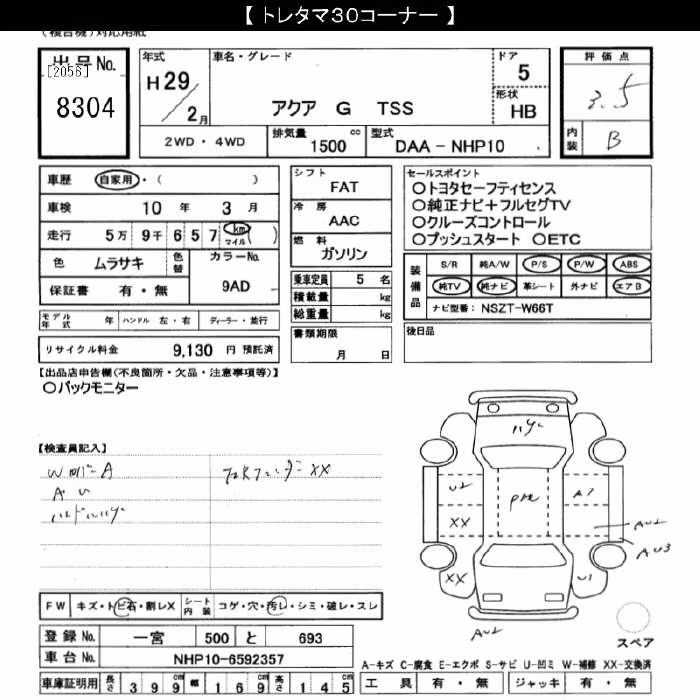 【 トレタマ30コーナー 】
(複合機)対応用紙
出品No. [2056] 8304
年式 H29/2月
車名・グレード アクア G TSS
ドア 5
形状 HB
評価点 3.5
内装 B
2WD・4WD 排気量 1500 cc 型式 DAA-NHP10
車歴 自家用・( )
車検 10年 3月
走行 5万 9千 6 5 7 km マイル ( )
色 ムラサキ 色替 カラーNo. 9AD
保証書 有・無
シフト FAT
冷房 AAC
燃料 ガソリン
乗車定員 5名
積載量 kg
総重量 kg
書類期限 月 日
セールスポイント
○トヨタセーフティセンス
○純正ナビ+フルセグTV
○クルーズコントロール
○プッシュスタート ○ETC
装備品 S/R 純A/W P/S P/W ABS
純TV 純ナビ 革シート 外ナビ エアB
ナビ型番: NSZT-W66T
後日品
モデル年式 年 ハンドル 左・右 ディーラー・並行
リサイクル料金 9,130 円 預託済
【出品店申告欄(不良箇所・欠品・注意事項等)】
○バックモニター
【検査員記入】
XX
A U
U2 A7
XX AU2
AU3
XX U1
AU2
FW キズ・トビ石・割レX シート内装 コゲ・穴・汚レ・シミ・破レ・スレ
登録No. 一宮 500 と 693
車台No. NHP10-6592357
車庫証明用 長さ 399cm 幅 169cm 高さ 145cm
スペア
A-キズ C-腐食 E-エクボ S-サビ U-凹ミ W-補修 XX-交換済
工具 有・無 ジャッキ 有・無